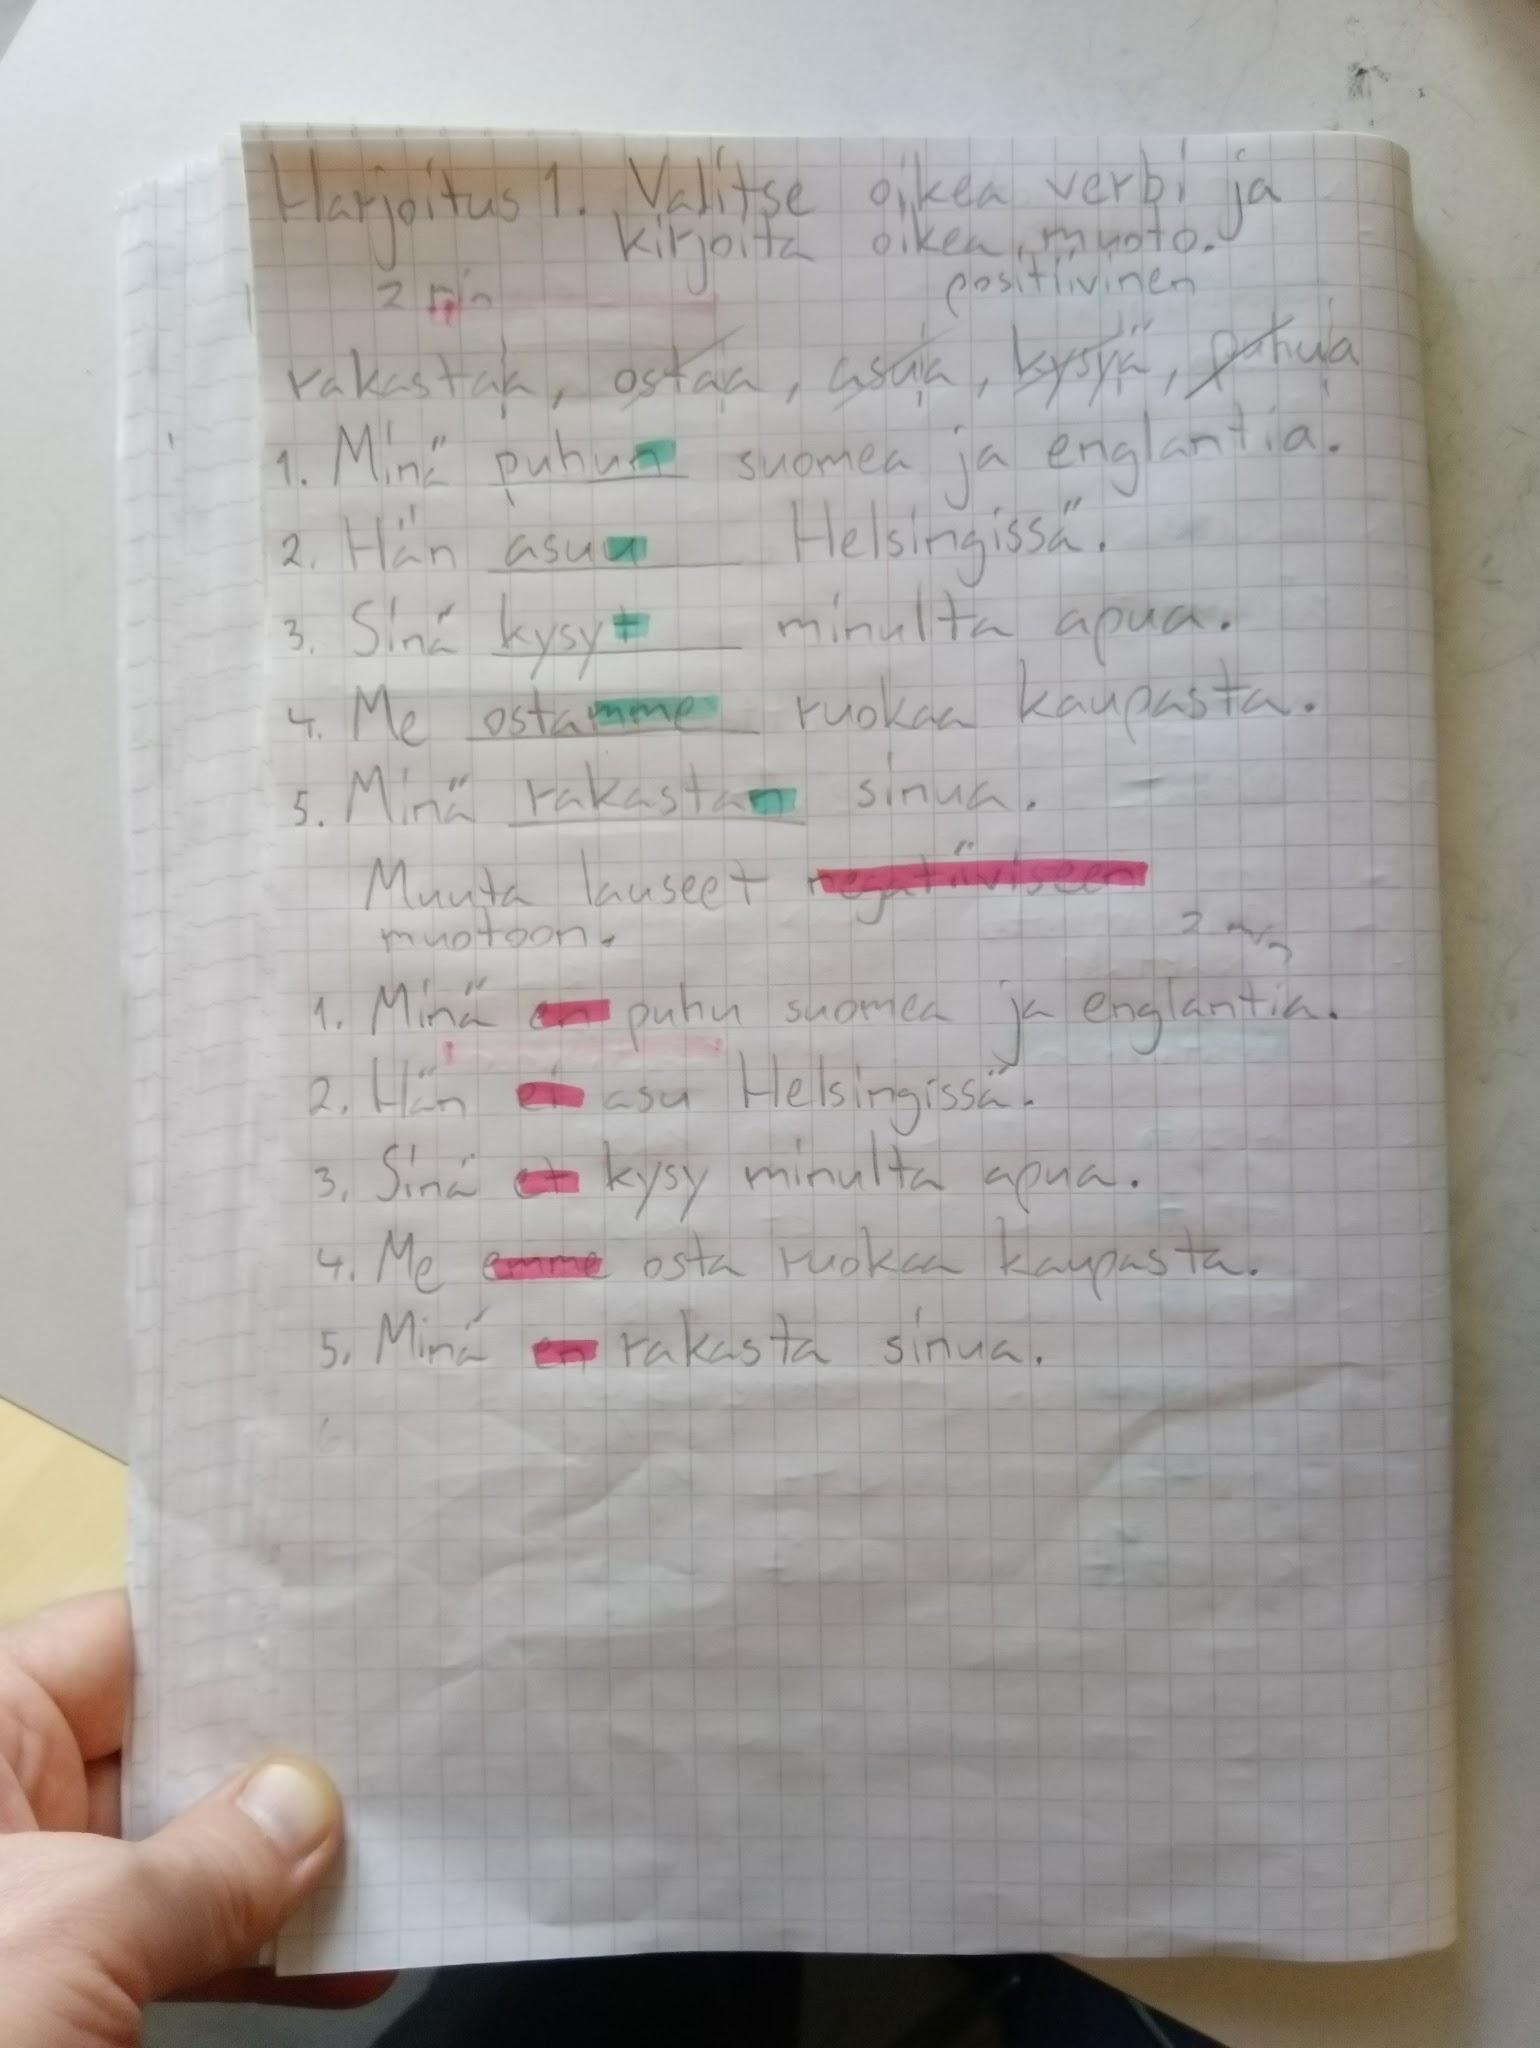 Harjoitus 1. Valitse oikea verbi ja
kirjoita oikea muoto.
2 min positiivinen
rakastaa, ostaa, asua, kysyä, puhua
1. Minä puhun suomea ja englantia.
2. Hän asuu Helsingissä.
3. Sinä kysyt minulta apua.
4. Me ostamme ruokaa kaupasta.
5. Minä rakastan sinua.
Muuta lauseet negatiiviseen
muotoon. 2 min
1. Minä en puhu suomea ja englantia.
2. Hän ei asu Helsingissä.
3. Sinä et kysy minulta apua.
4. Me emme osta ruokaa kaupasta.
5. Minä en rakasta sinua.